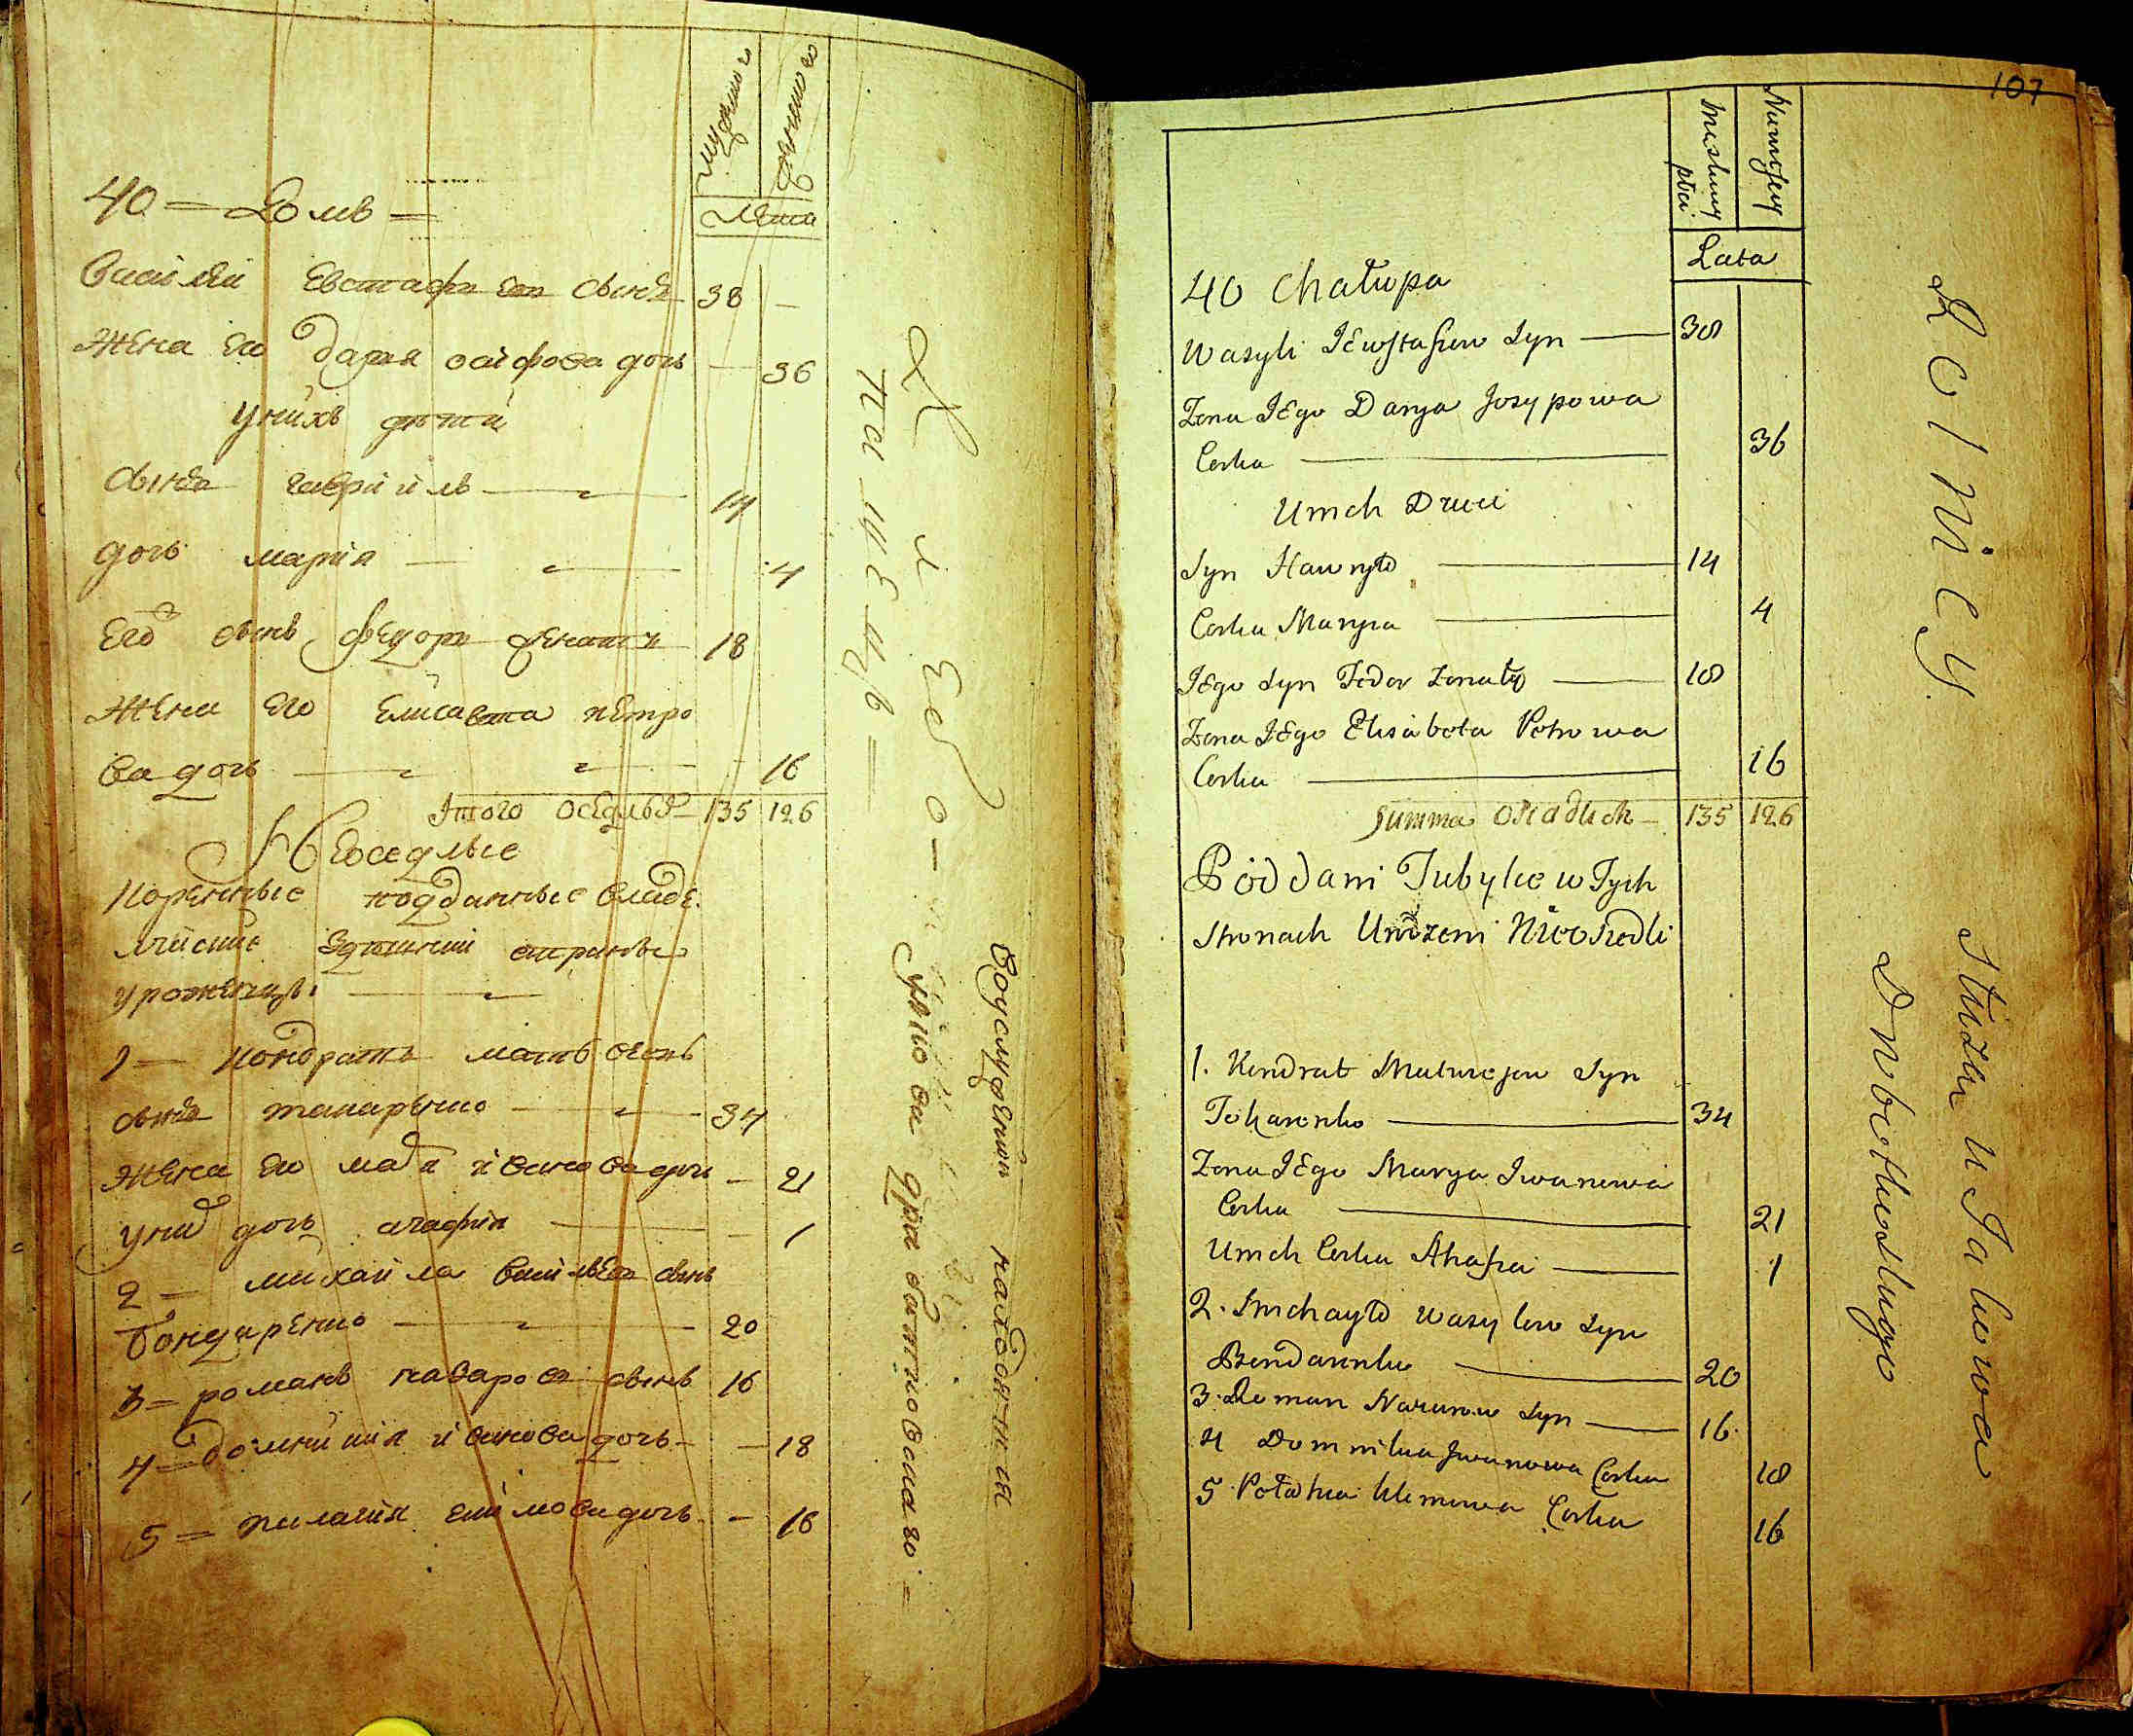 Мужеска
Женска
Лѣта
40 = Домъ =
Василій Евстафіевъ сынъ 38 —
Жена его Дарія Осіфова дочь — 36
У нихъ дѣти
Сынъ Гавріилъ — 14
Дочь Марія — 4
Его сынъ Феодоръ женатъ 18
Жена его Елисавета Петро
ва дочь — 16
Итого оседлыхъ 135 126
Неоседлые
Коренные подданные владе
лческие здешней стороны
уроженцы
1 — Кондратъ Матвеевъ
сынъ Токаренко — 34
Жена его Марія Иванова дочь — 21
У нихъ дочь Агафія — 1
2 — Михайла Васильевъ сынъ
Бондаренко — 20
3 = Романъ Назаровъ сынъ 16
4 = Домникія Иванова дочь — 18
5 = Пелагія Климова дочь — 16
Пашецъ =
107
Męskiey płci
Lata
40 Chałupa
Wasyli Jewstafiew Syn — 38
Żona Jego Darya Josypowa
Corka — 36
U nich Dzieci
Syn Hawryło — 14
Corka Marya — 4
Jego Syn Fedor Żonaty — 18
Żona Jego Elisabeta Petrowa
Corka — 16
Summa Osiadlich — 135 126
Poddani Tubylce w Tych
Stronach Urodzeni Nieosiedli
1. Kondrat Matwiejow Syn
Tokarenko — 34
Żona Jego Marya Iwanowa
Corka — 21
U nich Corka Ahafia — 1
2. Michayło Wasylow Syn
Bondarenko — 20
3. Roman Nazarow Syn — 16
4 Domnikia Iwanowa Corka 18
5. Połahia Klimowa Corka 16
Rolniey
Służący u Jakowa
Dubikowskiego